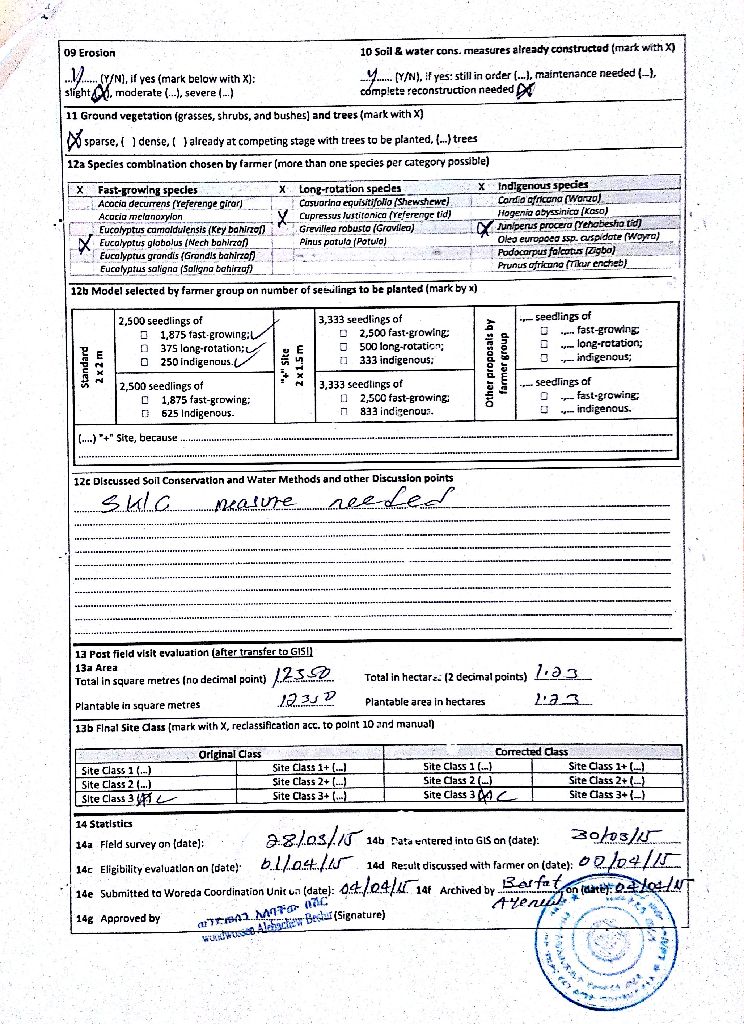 09 Erosion
10 Soil & water cons. measures already constructed (mark with X)
...Y...... (Y/N), if yes (mark below with X):
...Y...... (Y/N), if yes: still in order (...), maintenance needed (...),
slight (X), moderate (...), severe (...)
complete reconstruction needed (X)
11 Ground vegetation (grasses, shrubs, and bushes) and trees (mark with X)
(X) sparse, ( ) dense, ( ) already at competing stage with trees to be planted, (...) trees
12a Species combination chosen by farmer (more than one species per category possible)
X Fast-growing species X Long-rotation species X Indigenous species
Acacia decurrens (Yeferenge girar) Casuarina equisitifolia (Shewshewe) Cordia africana (Wanza)
Acacia melanoxylon X Cupressus lustitanica (Yeferenge tid) Hagenia abyssinica (Koso)
Eucalyptus camaldulensis (Key bahirzaf) Grevillea robusta (Gravilea) X Juniperus procera (Yehabesha tid)
X Eucalyptus globolus (Nech bahirzaf) Pinus patula (Patula) Olea europaea ssp. cuspidate (Wayra)
Eucalyptus grandis (Grandis bahirzaf) Podocarpus falcatus (Zigba)
Eucalyptus saligna (Saligna bahirzaf) Prunus africana (Tikur encheb)
12b Model selected by farmer group on number of seedlings to be planted (mark by x)
Standard 2 x 2 m
2,500 seedlings of
☐ 1,875 fast-growing; ✓
☐ 375 long-rotation; ✓
☐ 250 indigenous. ✓
2,500 seedlings of
☐ 1,875 fast-growing;
☐ 625 indigenous.
"+" Site 2 x 1.5 m
3,333 seedlings of
☐ 2,500 fast-growing;
☐ 500 long-rotation;
☐ 333 indigenous;
3,333 seedlings of
☐ 2,500 fast-growing;
☐ 833 indigenous.
Other proposals by farmer group
.,... seedlings of
☐ .,... fast-growing;
☐ .,... long-rotation;
☐ .,... indigenous;
.,... seedlings of
☐ .,... fast-growing;
☐ .,... indigenous.
(....) "+" Site, because
12c Discussed Soil Conservation and Water Methods and other Discussion points
SWC measure needed
13 Post field visit evaluation (after transfer to GIS!)
13a Area
Total in square metres (no decimal point) 12350 Total in hectares (2 decimal points) 1.23
Plantable in square metres 12350 Plantable area in hectares 1.23
13b Final Site Class (mark with X, reclassification acc. to point 10 and manual)
Original Class Corrected Class
Site Class 1 (...) Site Class 1+ (...) Site Class 1 (...) Site Class 1+ (...)
Site Class 2 (...) Site Class 2+ (...) Site Class 2 (...) Site Class 2+ (...)
Site Class 3 (X) C Site Class 3+ (...) Site Class 3 (X) C Site Class 3+ (...)
14 Statistics
14a Field survey on (date): 28/03/15 14b Data entered into GIS on (date): 30/03/15
14c Eligibility evaluation on (date): 01/04/15 14d Result discussed with farmer on (date): 02/04/15
14e Submitted to Woreda Coordination Unit on (date): 04/04/15 14f Archived by on (date): 04/04/15
14g Approved by (Signature)
wondwossen Alebachew Bedar